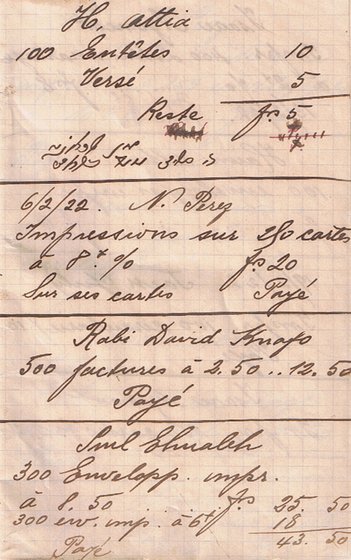 H. Attia
100 Entêtes 10
Versé 5
Reste frs 5
6/2/22. N. Perez
Impressions sur 250 cartes
à 8 % frs 20
Sur ses cartes Payé
Rabi David Knafo
500 factures à 2.50 .. 12.50
Payé
Sml Elmaleh
300 Envelopp. impr.
à 8.50 frs 25.50
300 env. imp. à 6 18.
43.50
Payé